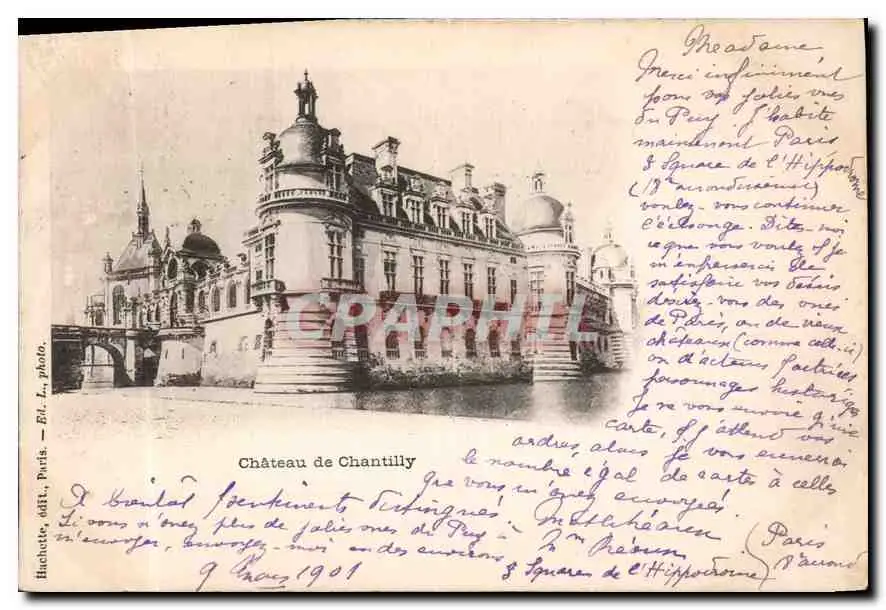 Madame
Merci infiniment
pour vos jolies vues
du Puy J'habite
maintenant Paris
8 Square de l'Hippodrome
(18e arrondissement)
voulez-vous continuer
l'échange. Dites-moi
ce que vous voulez & je
m'empresserai de
satisfaire vos désirs
désirez-vous des vues
de Paris, ou de vieux
châteaux (comme celle-ci)
ou d'acteurs, d'actrices
personnages historiques
Je ne vous envoie qu'une
carte, & j'attend vos
ordres, alors je vous enverrai
le nombre égal de cartes à celles
que vous m'avez envoyées
CPAPHIL
Château de Chantilly
A bientôt sentiments distingués
Si vous n'avez plus de jolies vues du Puy à
m'envoyer, envoyez-moi en des environs
9 mars 1901
Mme
8 Square de l'Hippodrome (Paris
18e arrond
Hachette, édit., Paris. — Ed. L., photo.